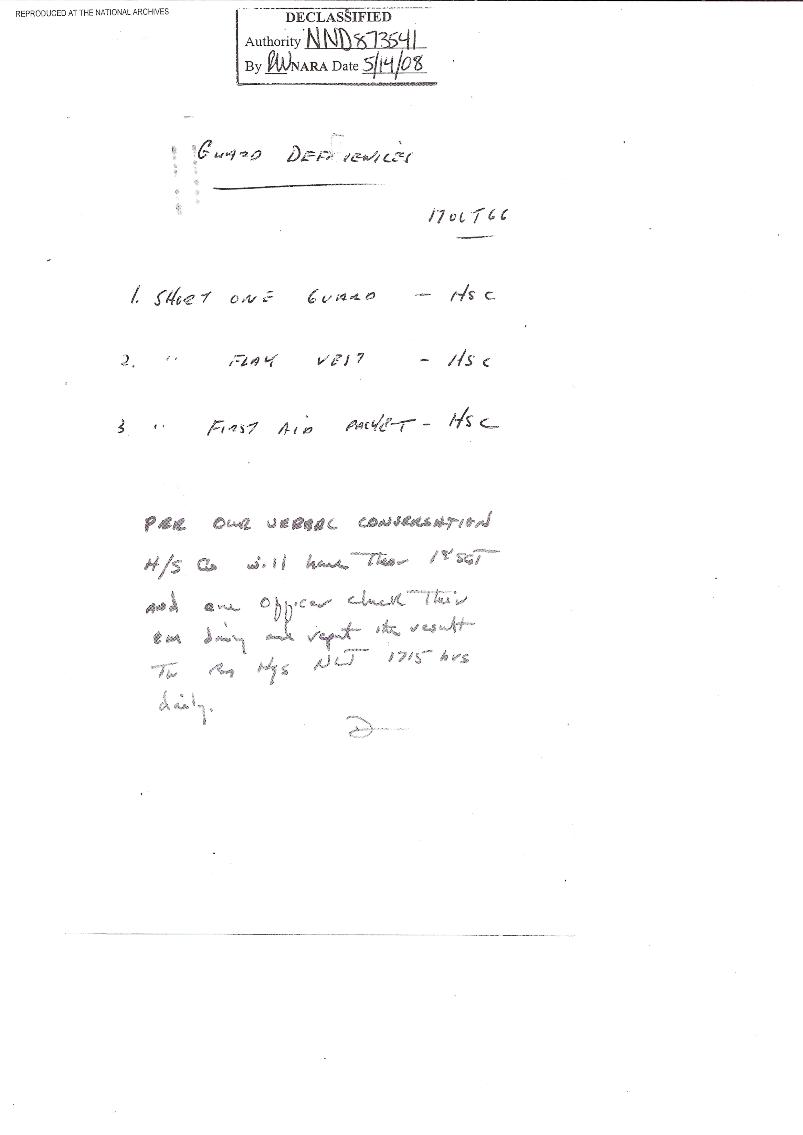 REPRODUCED AT THE NATIONAL ARCHIVES
DECLASSIFIED
Authority NND873541
By NARA Date 5/14/08
GUARD DEFICIENCIES
17 OCT 66
1. SHORT ONE GUARD - HSC
2. " FLAK VEST - HSC
3 " FIRST AID PACKET - HSC
PER OUR VERBAL CONVERSATION
H/S Co will have Their 1st SGT
and one Officer check Their
em and report the result
To Hqs NLT 1715 hrs
daily.